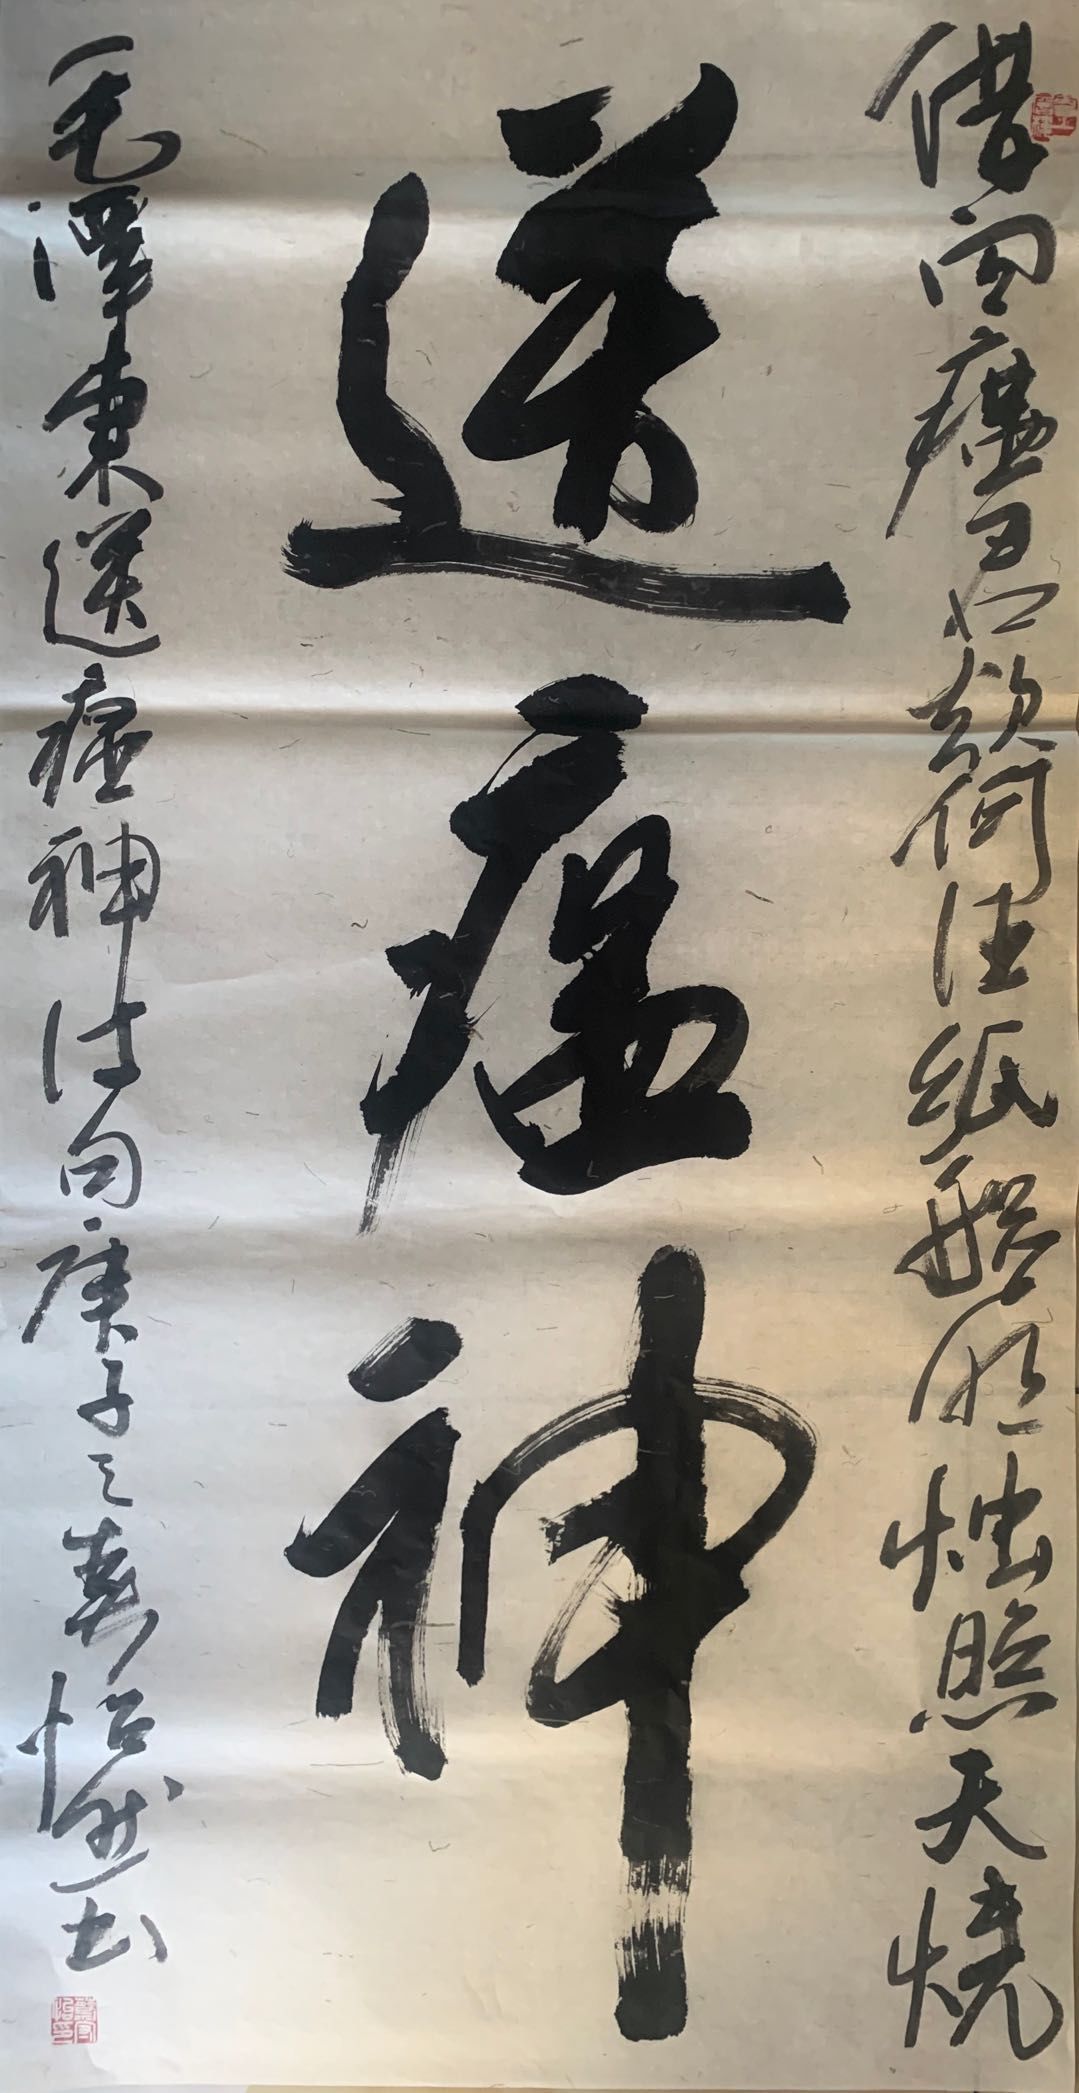 借问瘟君欲何往纸船明烛照天烧
送瘟神
毛泽东送瘟神诗句庚子之春怡然书